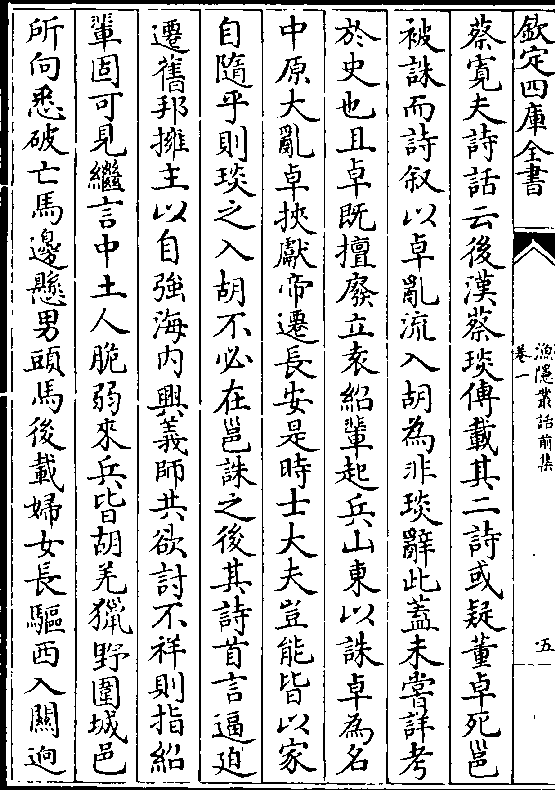 欽定四庫全書
漁隱叢話前集
卷一
五
蔡寛夫詩話云後漢蔡琰傳載其二詩或疑董卓死邕
被誅而詩叙以卓亂流入胡為非琰辭此葢未嘗詳考
於史也且卓既擅廢立袁紹輩起兵山東以誅卓為名
中原大亂卓挾獻帝遷長安是時士大夫豈能皆以家
自隨乎則琰之入胡不必在邕誅之後其詩首言逼迫
遷舊邦擁主以自強海内興義師共欲討不祥則指紹
輩固可見繼言中土人脆弱來兵皆胡羌獵野圍城邑
所向悉破亡馬邊懸男頭馬後載婦女長驅西入關逈